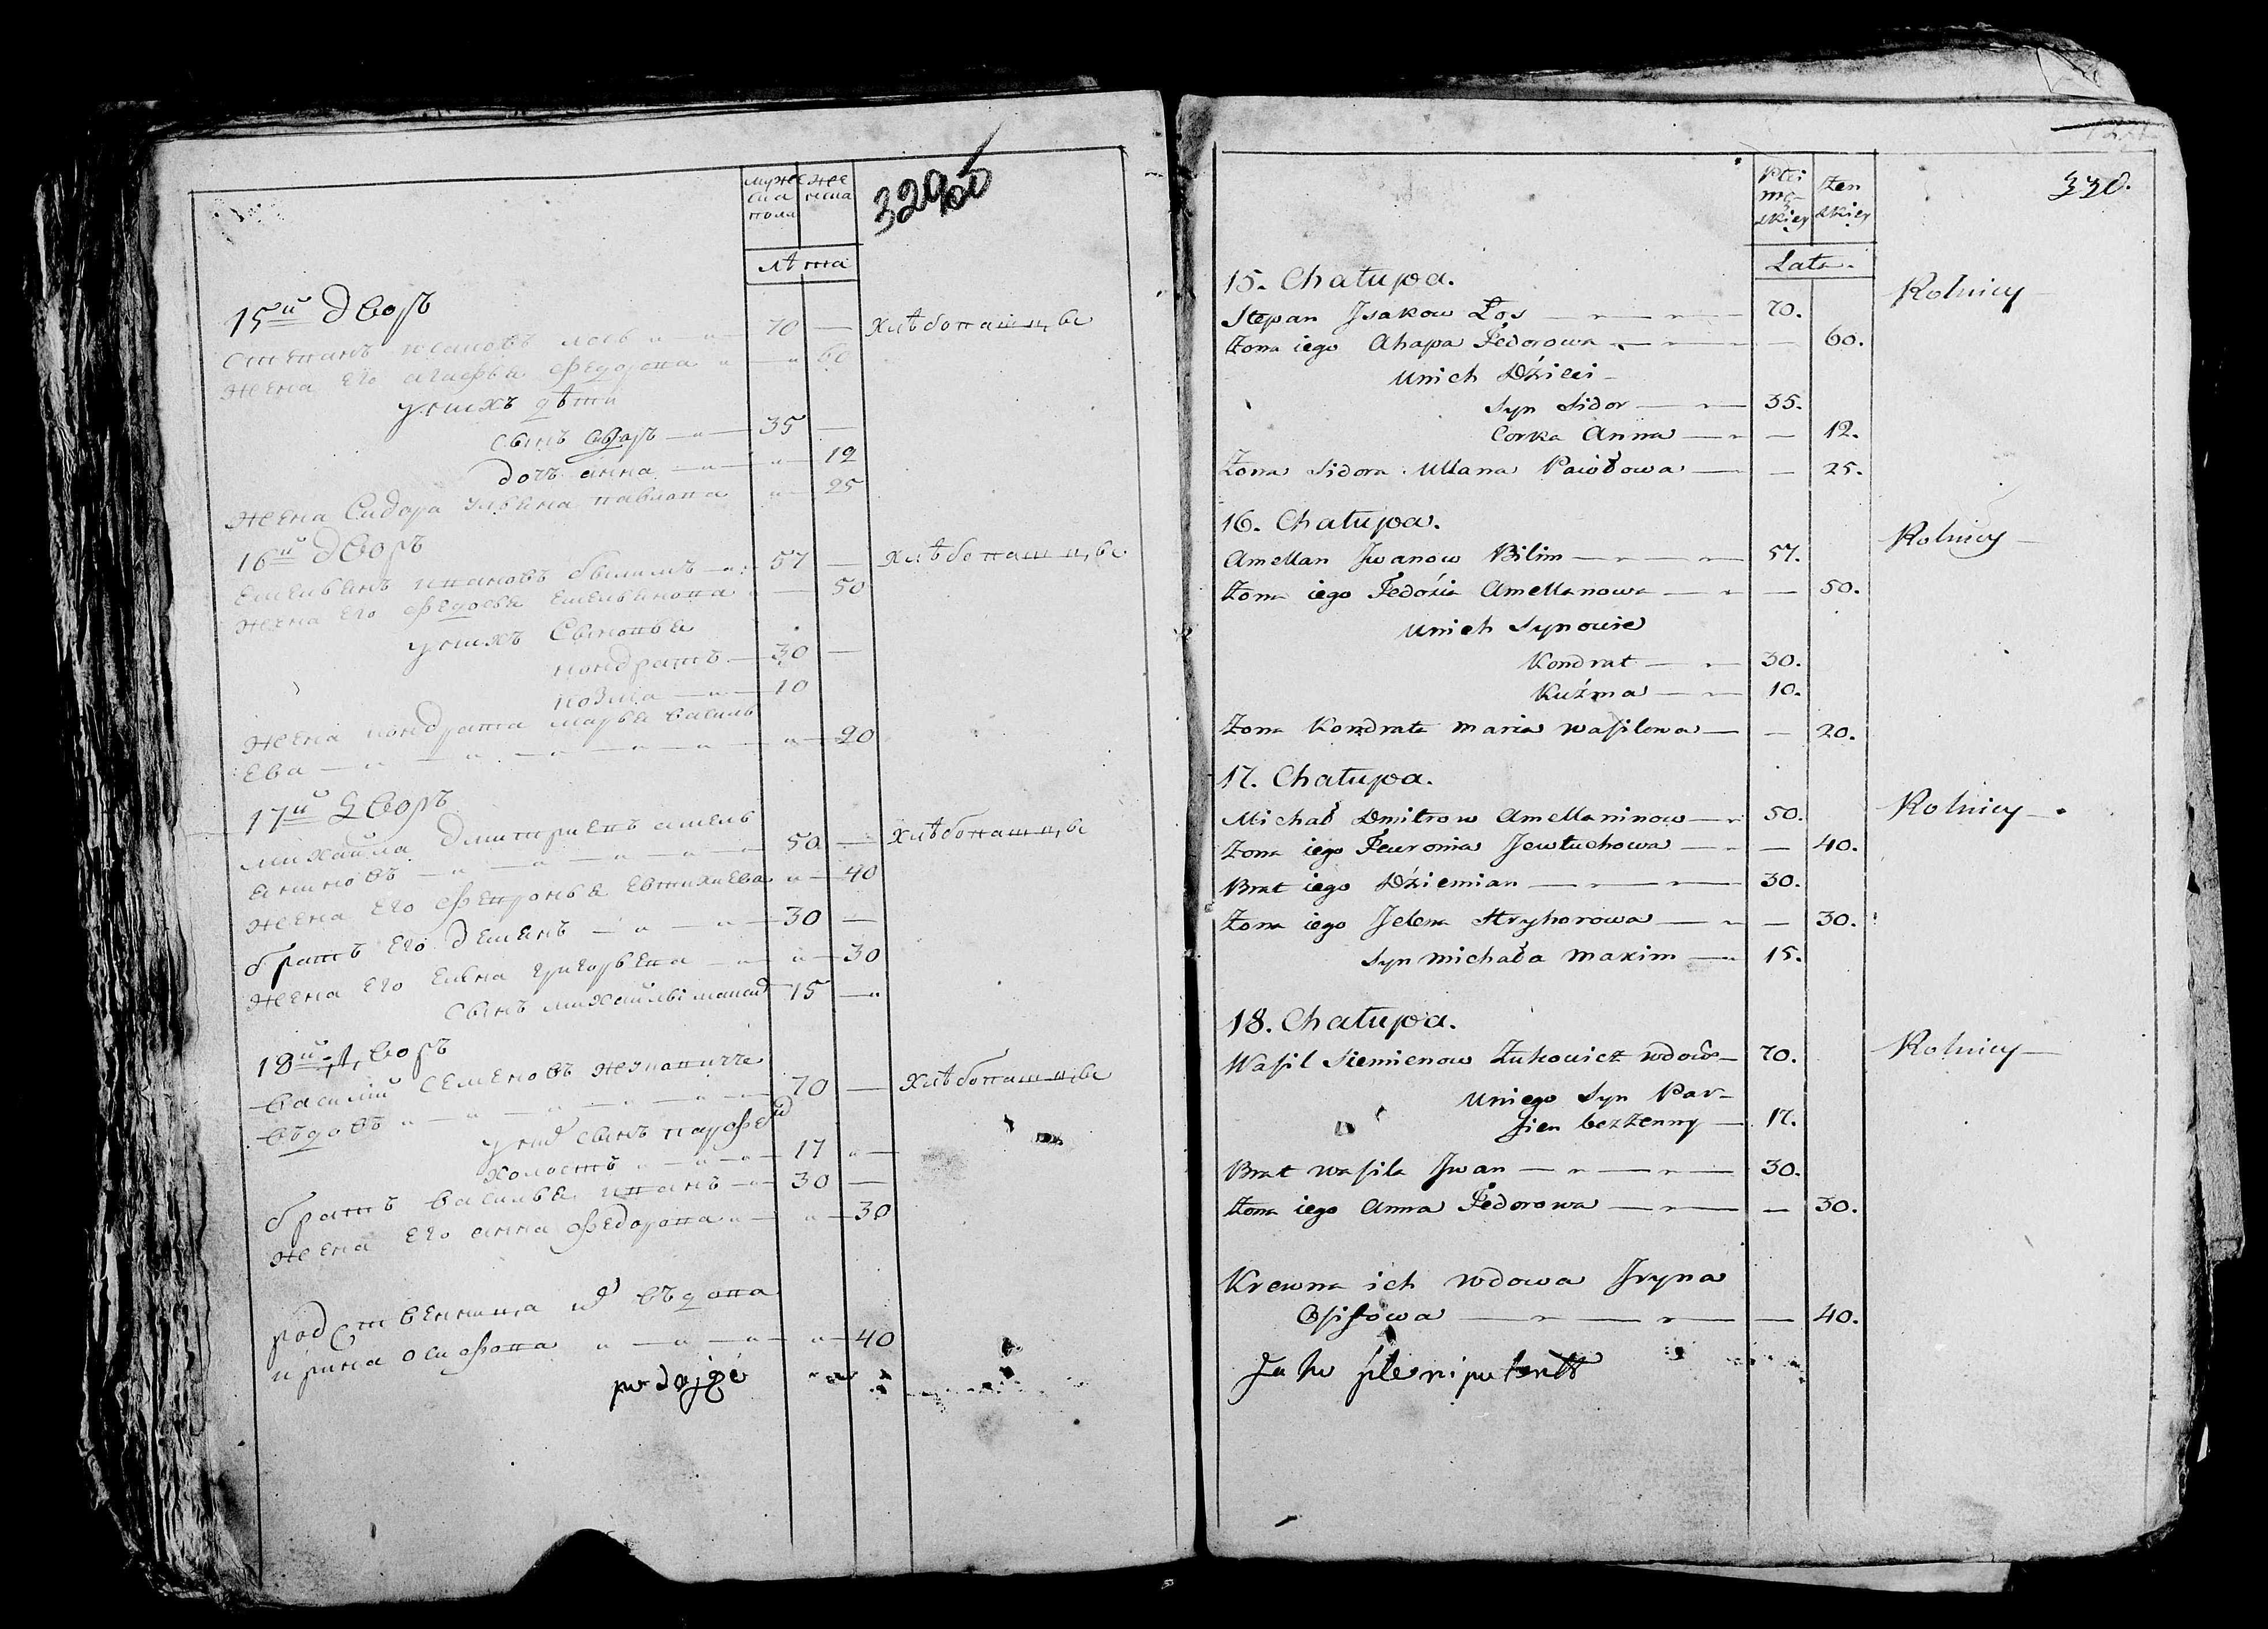 муже
ска
пола
жен
ска
лѣта
15й дворъ
Степанъ исаковъ лось 70 — хлѣбопашцы
жена его агафья федорова — 60
у нихъ дѣти
сынъ сидоръ — 35 —
дочь анна — 12
жена Сидора ульяна павлова 25
16й дворъ
емельянъ ивановъ былимъ 57 — хлѣбопашцы
жена его федосья емельянова — 50
у нихъ Сыновья
кондратъ — 30 —
козма — 10
жена кондрата марья василь
ева — 20
17й дворъ
михайла дмитриевъ амель
яниновъ — 50 — хлѣбопашцы
жена его февронья евтихиева 40
братъ его демянъ — 30 —
жена его елена григорьева — 30
сынъ михайлы максим 15 —
18й дворъ
василий семеновъ
въдовъ — 70 — хлѣбопашцы
у него сынъ парфе
холостъ — 17 —
братъ василья иванъ — 30 —
жена его анна федорова — 30
родственница их въдова
ирина осифова — 40
podajgé
330.
Płci
mę-
skiey
żen
skiey
Lata.
15. Chałupa. Rolnicy
Stepan Jsakow Łos — 70.
Żona iego Ahapa Fedorowa — 60.
Unich Dźieci
Syn Sidor — 35.
Corka Anna — 12.
Żona Sidora Ullana Pawłowa — 25.
16. Chałupa. Rolnicy
Amellan Jwanow Bilim — 57.
Żona iego Fedośia Amellanowa — 50.
Unich Synowie
Kondrat — 30.
Kuźma — 10.
Żona Kondrata Maria Wasilowa — 20.
17. Chałupa. Rolnicy
Michał Dmitrow Amellaninow — 50.
Żona iego Fewronia Jewtuchowa — 40.
Brat iego Dźiemian — 30.
Żona iego Jelena Hryhorowa — 30.
Syn Michała Maxim — 15.
18. Chałupa. Rolnicy
Wasil Siemienow Żukowicz wdow — 70.
Uniego Syn Par-
fien bezżenny — 17.
Brat Wasila Jwan — 30.
Żona iego Anna Fedorowa — 30.
Krewna ich wdowa Jryna
Osifowa — 40.
Jako plenipotent